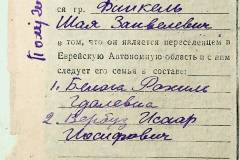 ся гр. Финкель
Шая Занвелевич
в том, что он является переселенцем в
Еврейскую Автономную область и с ним
следует его семья в составе:
1. Белога Рахиль
Гдалевна
2. Вербуз Исахар
Иосифович